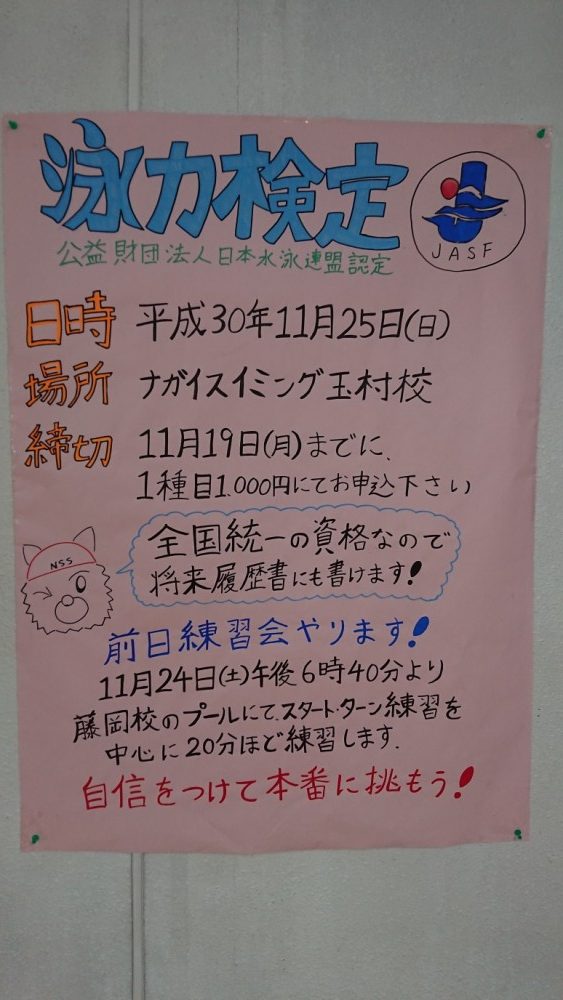 泳力検定
JASF
公益財団法人日本水泳連盟認定
日時 平成30年11月25日(日)
場所 ナガイスイミング玉村校
締切 11月19日(月)までに、
1種目1.000円にてお申込下さい
NSS
全国統一の資格なので
将来履歴書にも書けます!
前日練習会やります!
11月24日(土)午後6時40分より
藤岡校のプールにて、スタート・ターン練習を
中心に20分ほど練習します。
自信をつけて本番に挑もう!